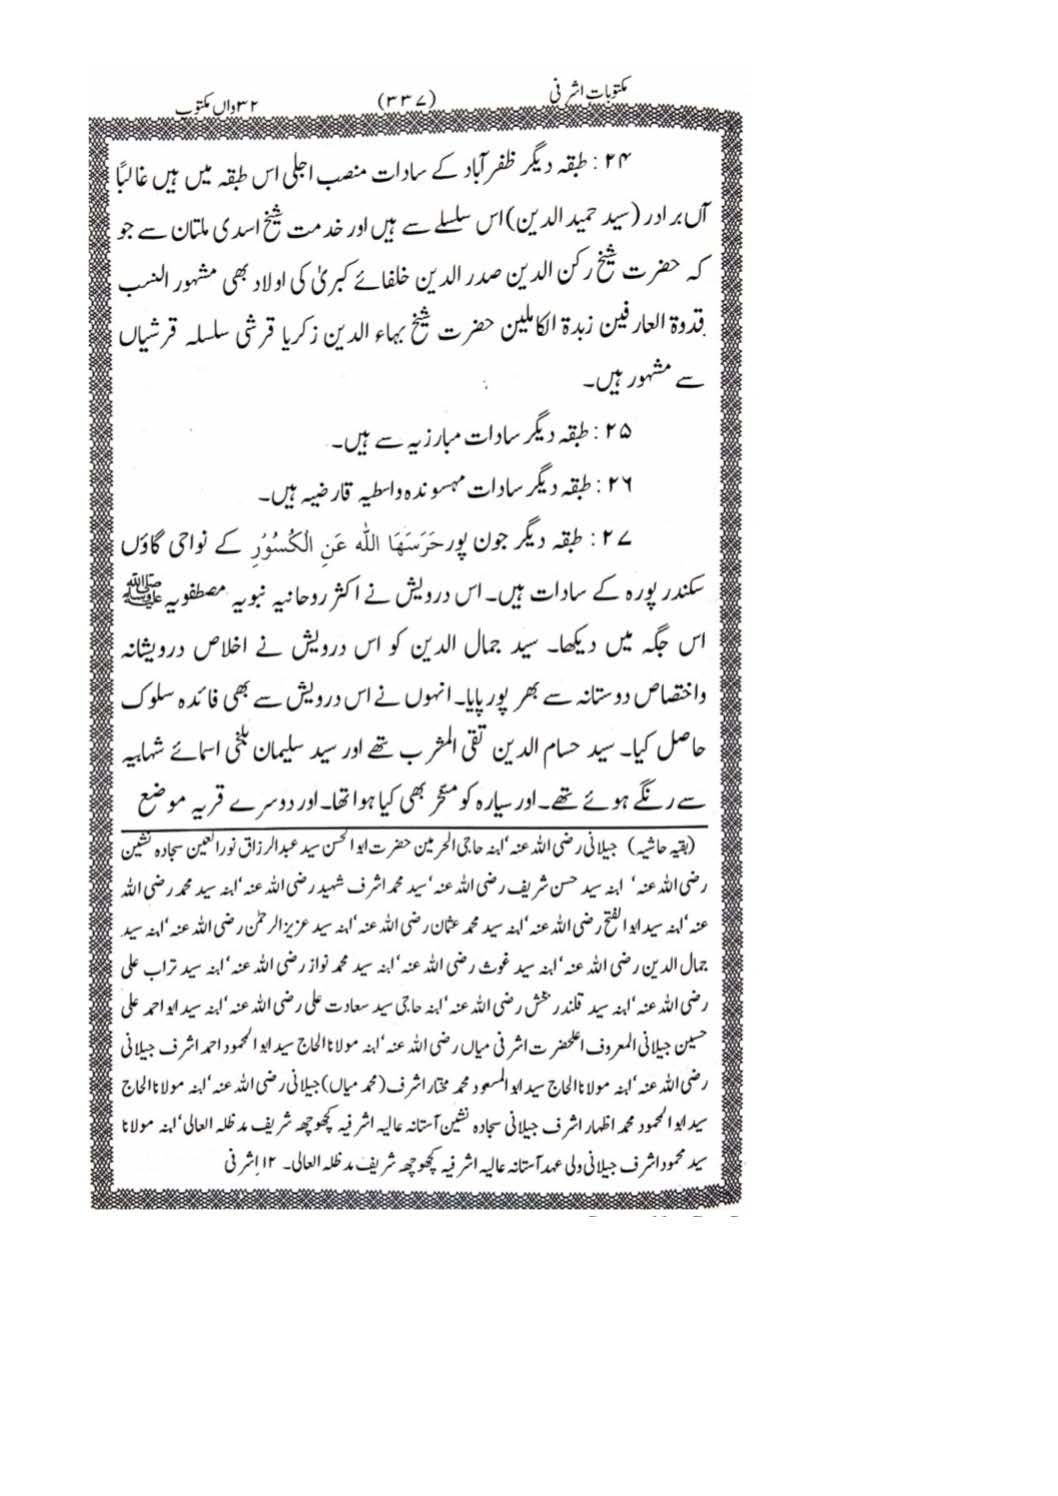 مکتوبات اشرفی (۳۳۷) ۳۲واں مکتوب
۲۴ : طبقہ دیگر ظفرآباد کے سادات منصب اجلی اس طبقہ میں ہیں غالباً
آں برادر (سید حمید الدین) اس سلسلے سے ہیں اور خدمت شیخ اسدی ملتان سے جو
کہ حضرت شیخ رکن الدین صدر الدین خلفائے کبریٰ کی اولاد بھی مشہور النسب
قدوۃ العارفین زبدۃ الکاملین حضرت شیخ بہاء الدین زکریا قرشی سلسلہ قرشیاں
سے مشہور ہیں۔
۲۵ : طبقہ دیگر سادات مبارزیہ سے ہیں۔
۲۶ : طبقہ دیگر سادات مہسوندہ واسطیہ قارضیہ ہیں۔
۲۷ : طبقہ دیگر جون پور حَرَسَهَا اللّٰه عَنِ الكُسُوْرِ کے نواحی گاؤں
سکندر پورہ کے سادات ہیں۔ اس درویش نے اکثر روحانیہ نبویہ مصطفویہ ﷺ
اس جگہ میں دیکھا۔ سید جمال الدین کو اس درویش نے اخلاص درویشانہ
واختصاص دوستانہ سے بھر پور پایا۔ انہوں نے اس درویش سے بھی فائدہ سلوک
حاصل کیا۔ سید حسام الدین تقی المشرب تھے اور سید سلیمان بلخی اسمائے شہابیہ
سے رنگے ہوئے تھے۔ اور سیارہ کو مسخر بھی کیا ہوا تھا۔ اور دوسرے قریہ موضع
(بقیہ حاشیہ) جیلانی رضی اللہ عنہ‘ ابنہ حاجی الحرمین حضرت ابوالحسن سید عبدالرزاق نورالعین سجادہ نشین
رضی اللہ عنہ‘ ابنہ سید حسن شریف رضی اللہ عنہ‘ سید محمد اشرف شہید رضی اللہ عنہ‘ ابنہ سید محمد رضی اللہ
عنہ‘ ابنہ سید ابوالفتح رضی اللہ عنہ‘ ابنہ سید محمد عثمان رضی اللہ عنہ‘ ابنہ سید عزیزالرحمٰن رضی اللہ عنہ‘ ابنہ سید
جمال الدین رضی اللہ عنہ‘ ابنہ سید غوث رضی اللہ عنہ‘ ابنہ سید محمد نواز رضی اللہ عنہ‘ ابنہ سید تراب علی
رضی اللہ عنہ‘ ابنہ سید قلندر بخش رضی اللہ عنہ‘ ابنہ حاجی سید سعادت علی رضی اللہ عنہ‘ ابنہ سید ابو احمد علی
حسین جیلانی المعروف اعلحضرت اشرفی میاں رضی اللہ عنہ‘ ابنہ مولانا الحاج سید ابوالمحمود احمد اشرف جیلانی
رضی اللہ عنہ‘ ابنہ مولانا الحاج سید ابوالمسعود محمد مختار اشرف (محمد میاں) جیلانی رضی اللہ عنہ‘ ابنہ مولانا الحاج
سید ابوالمحمود محمد اظہار اشرف جیلانی سجادہ نشین آستانہ عالیہ اشرفیہ کچھوچھہ شریف مدظلہ العالی‘ ابنہ مولانا
سید محمود اشرف جیلانی ولی عہد آستانہ عالیہ اشرفیہ کچھوچھہ شریف مدظلہ العالی۔ ۱۲ اشرفی